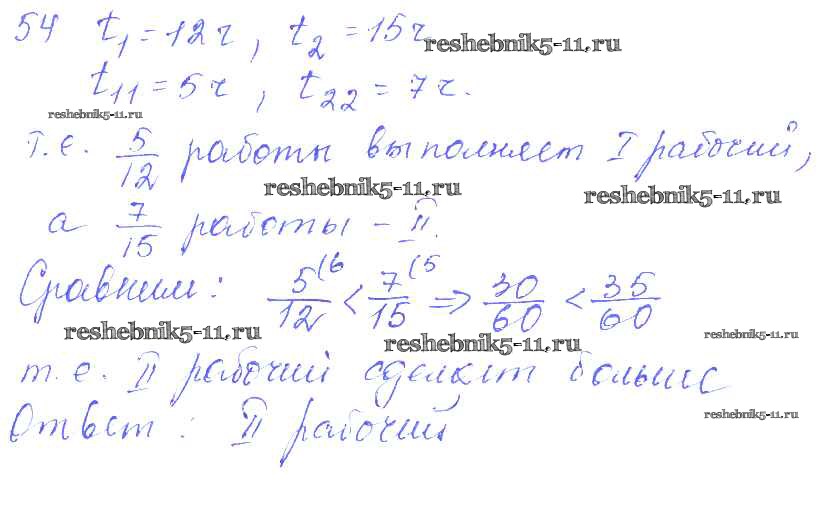 54 t₁ = 12 ч, t₂ = 15 ч
reshebnik5-11.ru
t₁₁ = 5 ч, t₂₂ = 7 ч.
reshebnik5-11.ru
т.е. 5/12 работы выполняет I рабочий,
reshebnik5-11.ru reshebnik5-11.ru
а 7/15 работы – II.
Сравним: 5/12 (6 < 7/15 (5 => 30/60 < 35/60
reshebnik5-11.ru reshebnik5-11.ru reshebnik5-11.ru
т.е. II рабочий сделает больше
Ответ: II рабочий
reshebnik5-11.ru